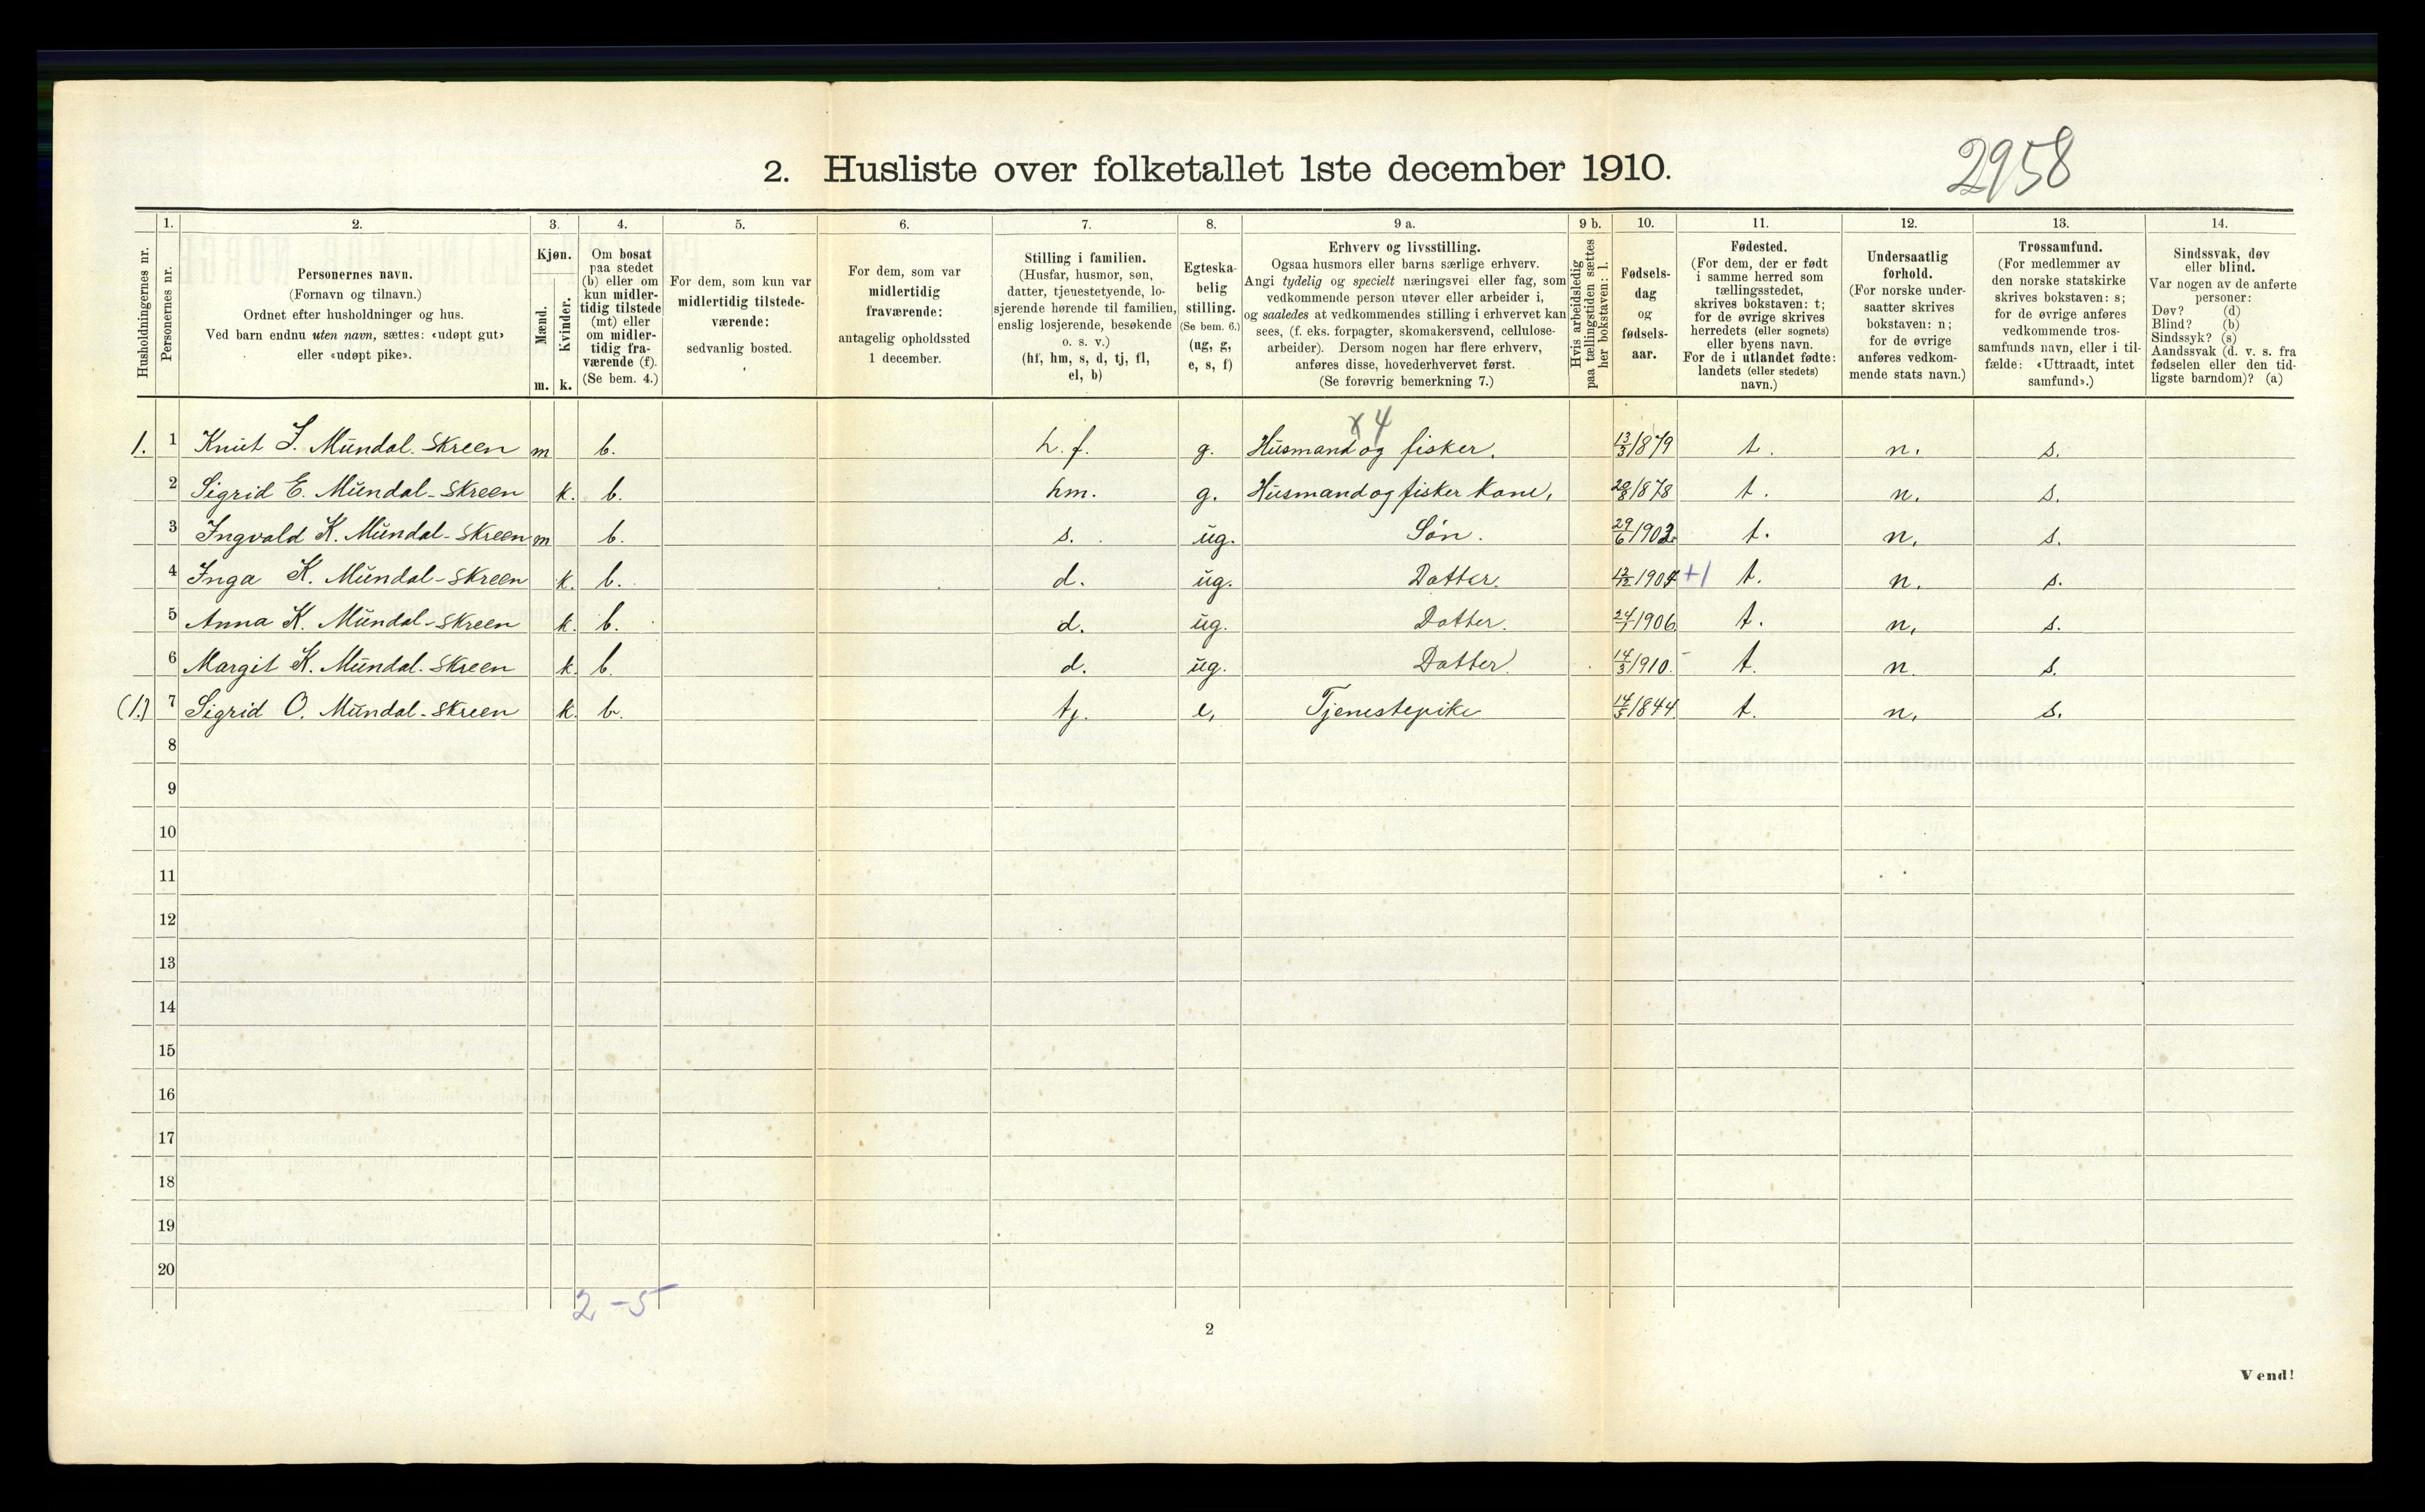 2958
2. Husliste over folketallet 1ste december 1910.
1. 2. 3. 4. 5. 6. 7. 8. 9 a. 9 b. 10. 11. 12. 13. 14.
Husholdningernes nr.
Personernes nr.
Personernes navn.
(Fornavn og tilnavn.)
Ordnet efter husholdninger og hus.
Ved barn endnu uten navn, sættes: «udøpt gut»
eller «udøpt pike».
Kjøn.
Mænd.
Kvinder.
m. k.
Om bosat
paa stedet
(b) eller om
kun midler-
tidig tilstede
(mt) eller
om midler-
tidig fra-
værende (f).
(Se bem. 4.)
For dem, som kun var
midlertidig tilstede-
værende:
sedvanlig bosted.
For dem, som var
midlertidig
fraværende:
antagelig opholdssted
1 december.
Stilling i familien.
(Husfar, husmor, søn,
datter, tjenestetyende, lo-
sjerende hørende til familien,
enslig losjerende, besøkende
o. s. v.)
(hf, hm, s, d, tj, fl,
el, b)
Egteska-
belig
stilling.
(Se bem. 6.)
(ug, g,
e, s, f)
Erhverv og livsstilling.
Ogsaa husmors eller barns særlige erhverv.
Angi tydelig og specielt næringsvei eller fag, som
vedkommende person utøver eller arbeider i,
og saaledes at vedkommendes stilling i erhvervet kan
sees, (f. eks. forpagter, skomakersvend, cellulose-
arbeider). Dersom nogen har flere erhverv,
anføres disse, hovederhvervet først.
(Se forøvrig bemerkning 7.)
Hvis arbeidsledig
paa tællingstiden sættes
her bokstaven: l.
Fødsels-
dag
og
fødsels-
aar.
Fødested.
(For dem, der er født
i samme herred som
tællingsstedet,
skrives bokstaven: t;
for de øvrige skrives
herredets (eller sognets)
eller byens navn.
For de i utlandet fødte:
landets (eller stedets)
navn.)
Undersaatlig
forhold.
(For norske under-
saatter skrives
bokstaven: n;
for de øvrige
anføres vedkom-
mende stats navn.)
Trossamfund.
(For medlemmer av
den norske statskirke
skrives bokstaven: s;
for de øvrige anføres
vedkommende tros-
samfunds navn, eller i til-
fælde: «Uttraadt, intet
samfund».)
Sindssvak, døv
eller blind.
Var nogen av de anførte
personer:
Døv? (d)
Blind? (b)
Sindssyk? (s)
Aandssvak (d. v. s. fra
fødselen eller den tid-
ligste barndom)? (a)
x 4
1. 1 Knut I. Mundal-Skreen m b. h. f. g. Husmand og fisker. 13/3 1879 t. n. s.
2 Sigrid E. Mundal-Skreen k. b. hm. g. Husmand og fisker kone, 1878 t. n. s.
3 Ingvald K. Mundal-Skreen m b. s. ug. Søn. 29/6 1902 t. n. s.
4 Inga K. Mundal-Skreen k. b. d. ug. Datter. 1904 +1 t. n. s.
5 Anna K. Mundal-Skreen k. b. d. ug. Datter. 24/7 1906 t. n. s.
6 Margit K. Mundal-Skreen k. b. d. ug. Datter. 14/3 1910. t. n. s.
(1.) 7 Sigrid O. Mundal-Skreen k. b. tj. e, Tjenestepike 14/5 1844 t. n. s.
8
9
10
11
12
13
14
15
16
17
18
19
20
2-5
2
Vend!